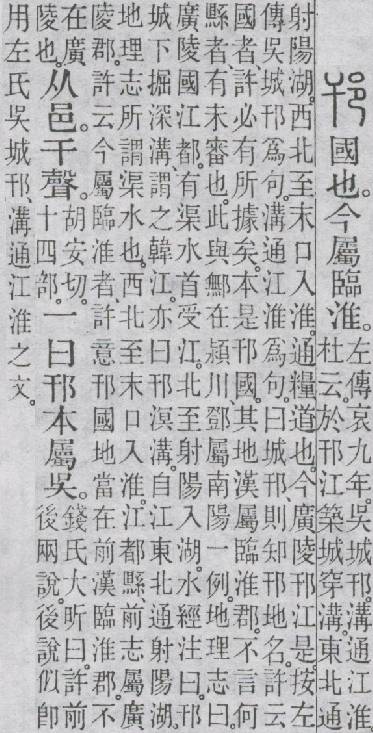 邗國也。今屬臨淮。
左傳哀九年。吳城邗。溝通江淮。
杜云。於邗江築城穿溝。東北通
射陽湖。西北至末口入淮。通糧道也。今廣陵邗江是。按左
傳吳城邗爲句。溝通江淮爲句。曰城邗、則知邗地名。許云
國者、許必有所據矣。本是邗國。其地漢屬臨淮郡。不言何
縣者、有未審也。此與鄦在潁川鄧屬南陽一例。地理志曰。
廣陵國江都。有渠水首受江。北至射陽入湖。水經注曰。邗
城下掘深溝。謂之韓江。亦曰邗溟溝。自江東北通射陽湖。
地理志所謂渠水也。西北至末口入淮。江都縣前志屬廣
陵郡。許云今屬臨淮者、許意邗國地當在前漢臨淮郡。不
在廣
陵也。
从邑。干聲。
胡安切。
十四部。
一曰邗本屬吳。
錢氏大昕曰。許前
後兩說。後說似卽
用左氏吳城邗、溝通江淮之文。